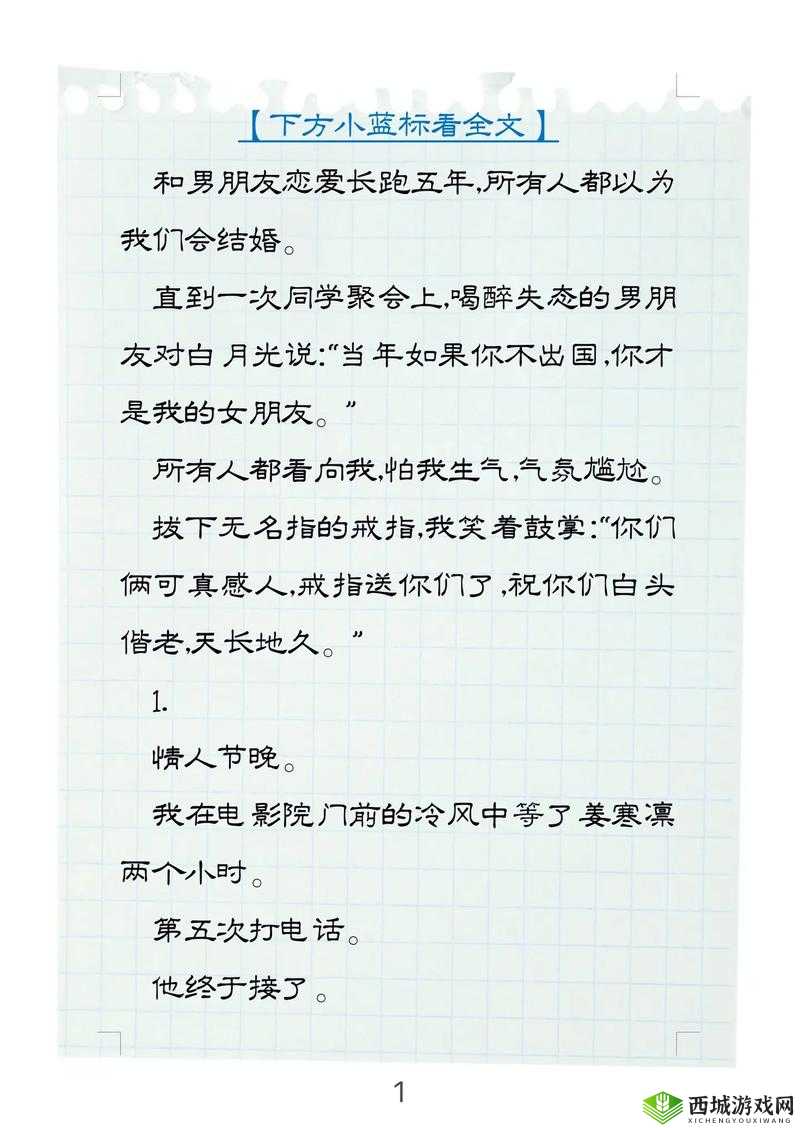 【下方小蓝标看全文】
和男朋友恋爱长跑五年,所有人都以为
我们会结婚。
直到一次同学聚会上,喝醉失态的男朋
友对白月光说:“当年如果你不出国,你才
是我的女朋友。”
所有人都看向我,怕我生气,气氛尴尬。
拔下无名指的戒指,我笑着鼓掌:“你们
俩可真感人,戒指送你们了,祝你们白头
偕老,天长地久。”
1.
情人节晚。
我在电影院门前的冷风中等了姜寒凛
两个小时。
第五次打电话。
他终于接了。
1
西城游戏网
XICHENGYOUXIWANG